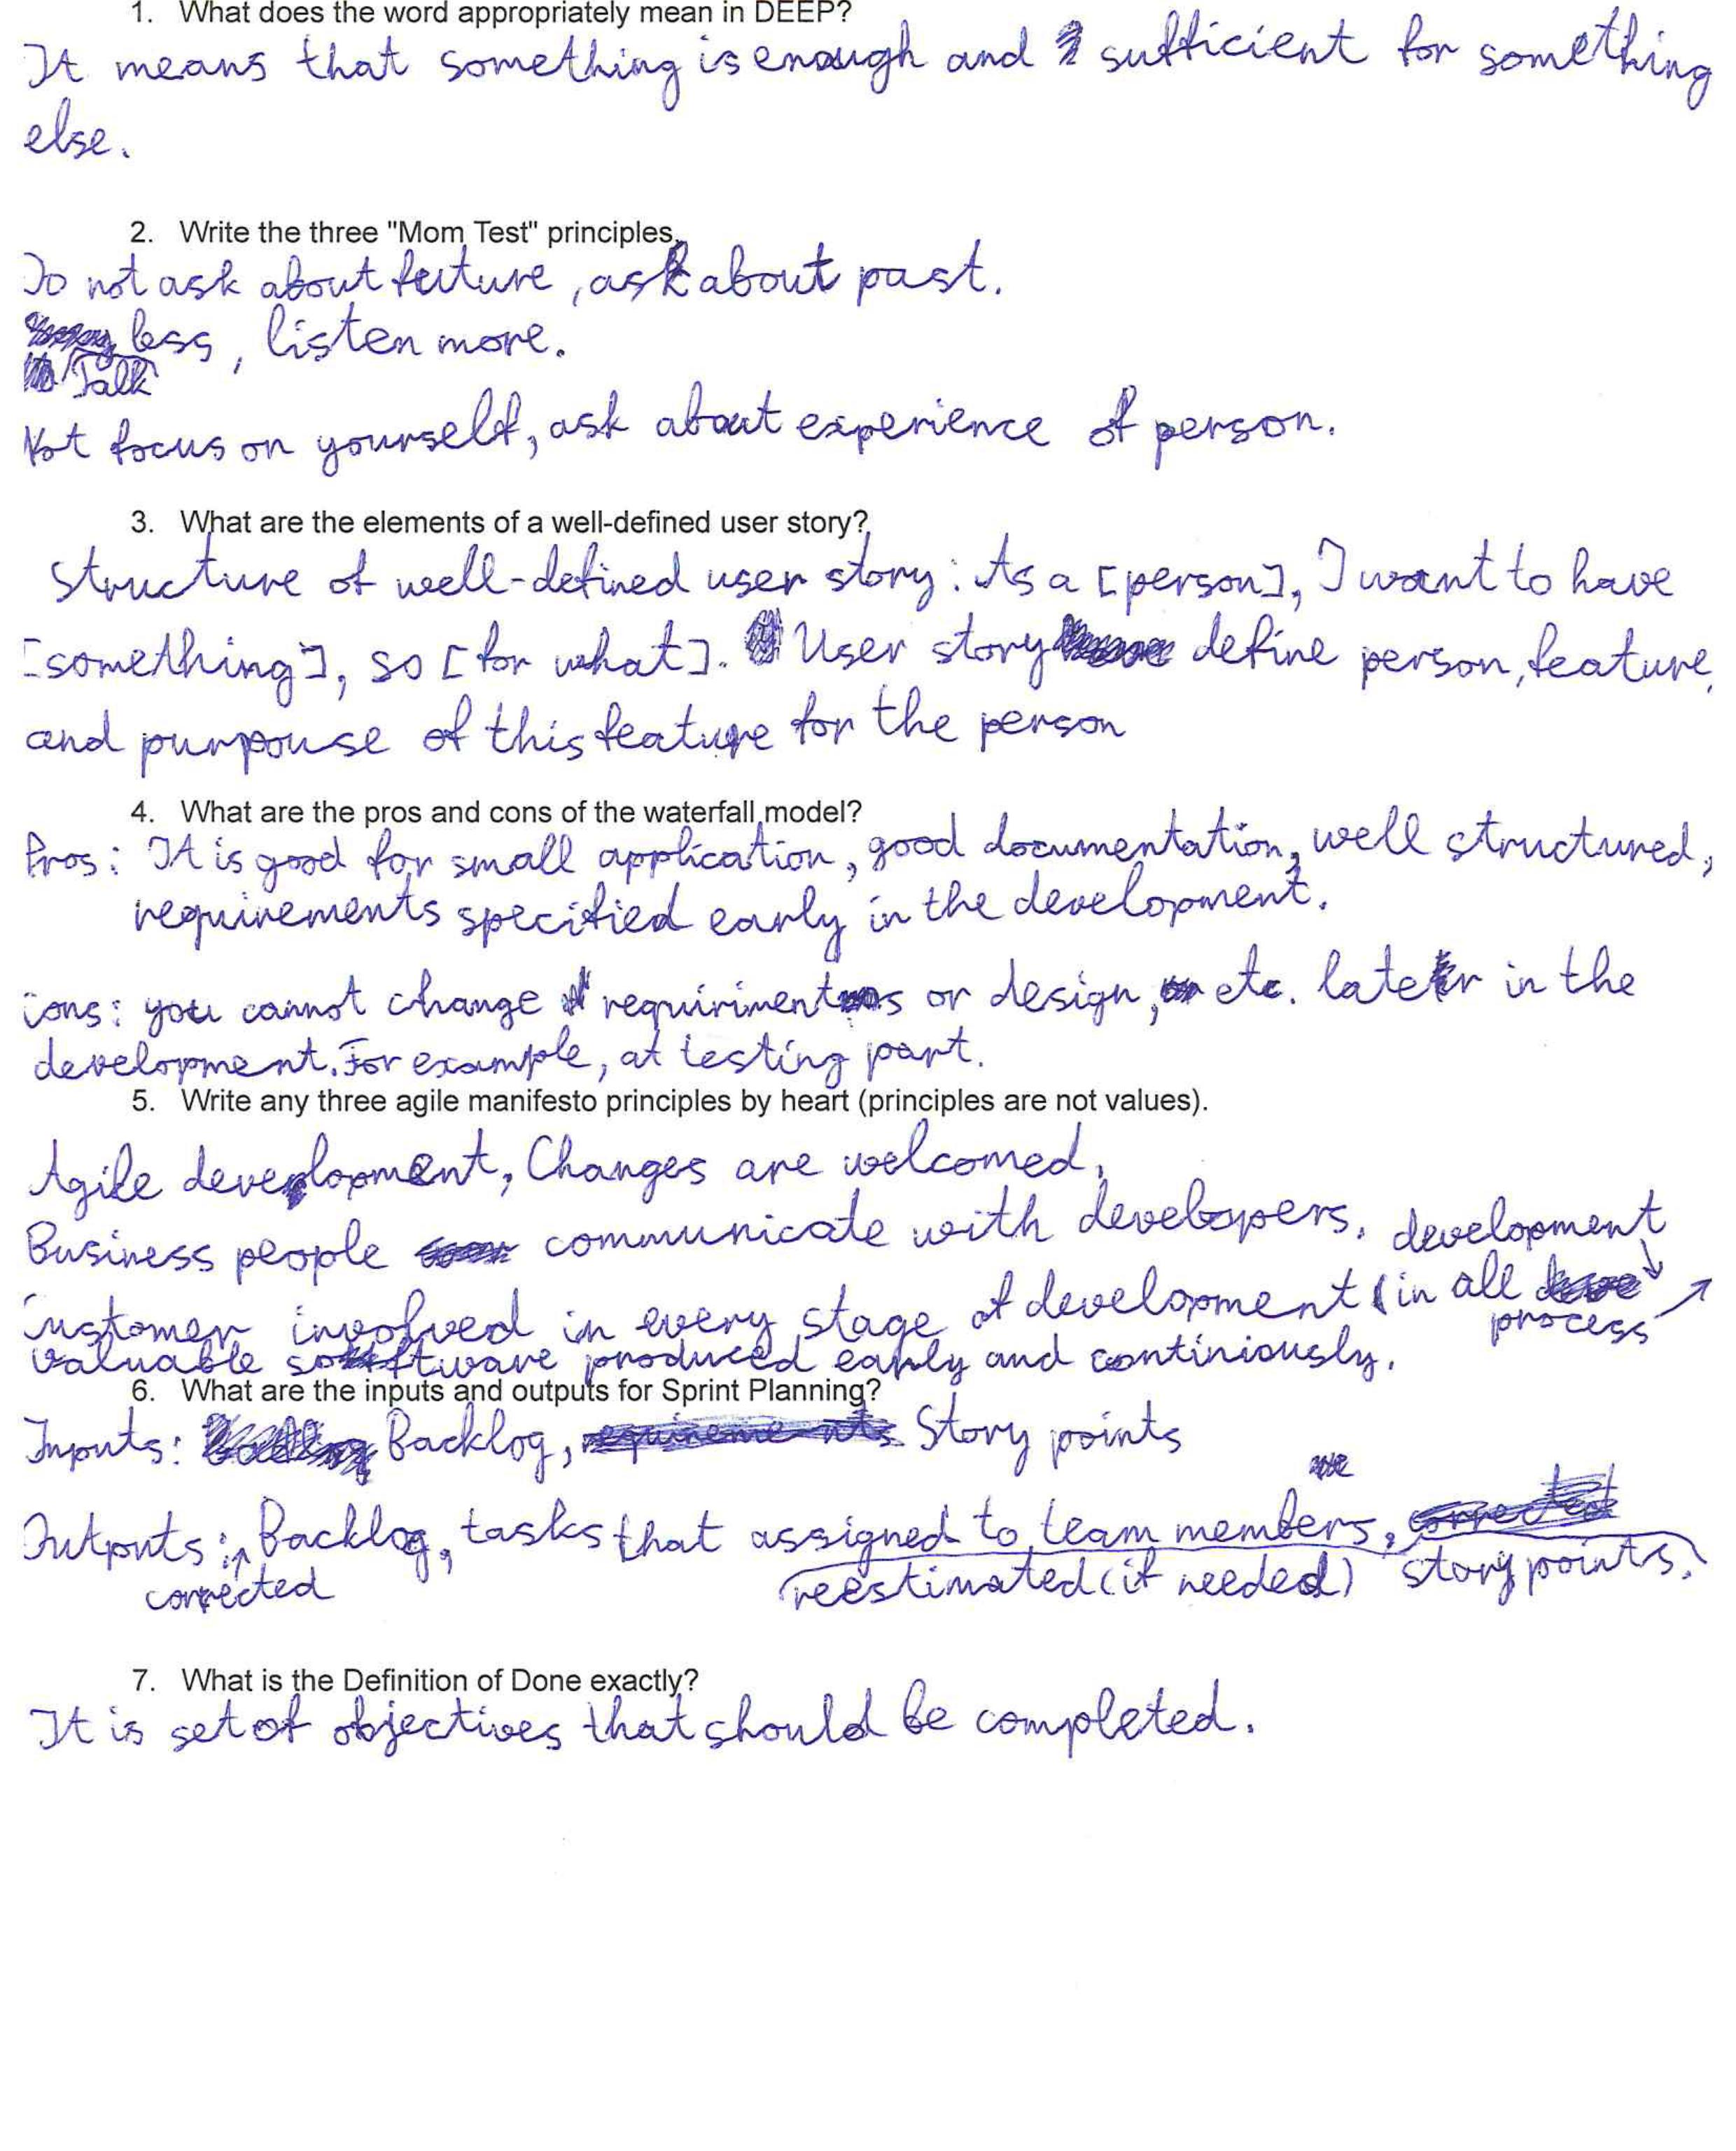 1. What does the word appropriately mean in DEEP?
It means that something is enough and sufficient for something
else.
2. Write the three "Mom Test" principles.
Do not ask about future, ask about past.
Talk less, listen more.
Not focus on yourself, ask about experience of person.
3. What are the elements of a well-defined user story?
Structure of well-defined user story: As a [person], I want to have
[something], so [for what]. User story define person, feature,
and purpouse of this feature for the person
4. What are the pros and cons of the waterfall model?
Pros: It is good for small application, good documentation, well structured,
requirements specified early in the development.
Cons: you cannot change requiriments or design, etc. later in the
development. For example, at testing part.
5. Write any three agile manifesto principles by heart (principles are not values).
Agile development, Changes are welcomed.
Business people communicate with developers.
Customer involved in every stage of development (in all development process
valuable software produced early and continiously.
6. What are the inputs and outputs for Sprint Planning?
Inputs: Backlog, Story points
Outputs: corrected Backlog, tasks that we assigned to team members,
reestimated (if needed) story points.
7. What is the Definition of Done exactly?
It is set of objectives that should be completed.